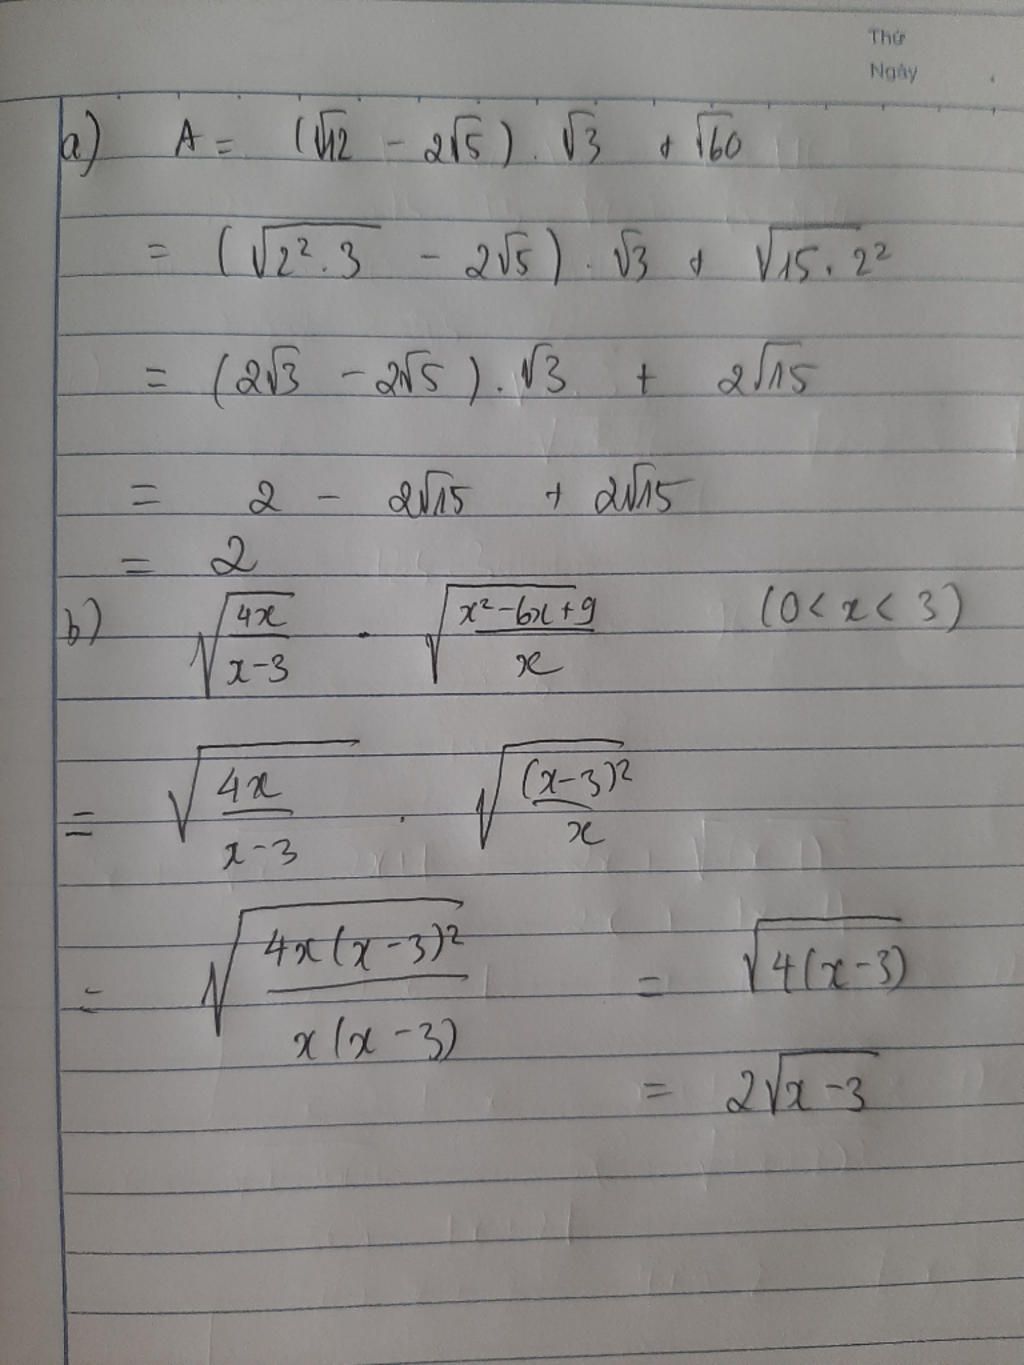 Thứ
Ngày
a) A = (√12 - 2√5) . √3 + √60
= (√(2² . 3) - 2√5) . √3 + √(15 . 2²)
= (2√3 - 2√5) . √3 + 2√15
= 2 - 2√15 + 2√15
= 2
b) √(4x/(x-3)) . √((x²-6x+9)/x) (0 < x < 3)
= √(4x/(x-3)) . √((x-3)²/x)
= √(4x(x-3)²/(x(x-3))) = √(4(x-3))
= 2√(x-3)